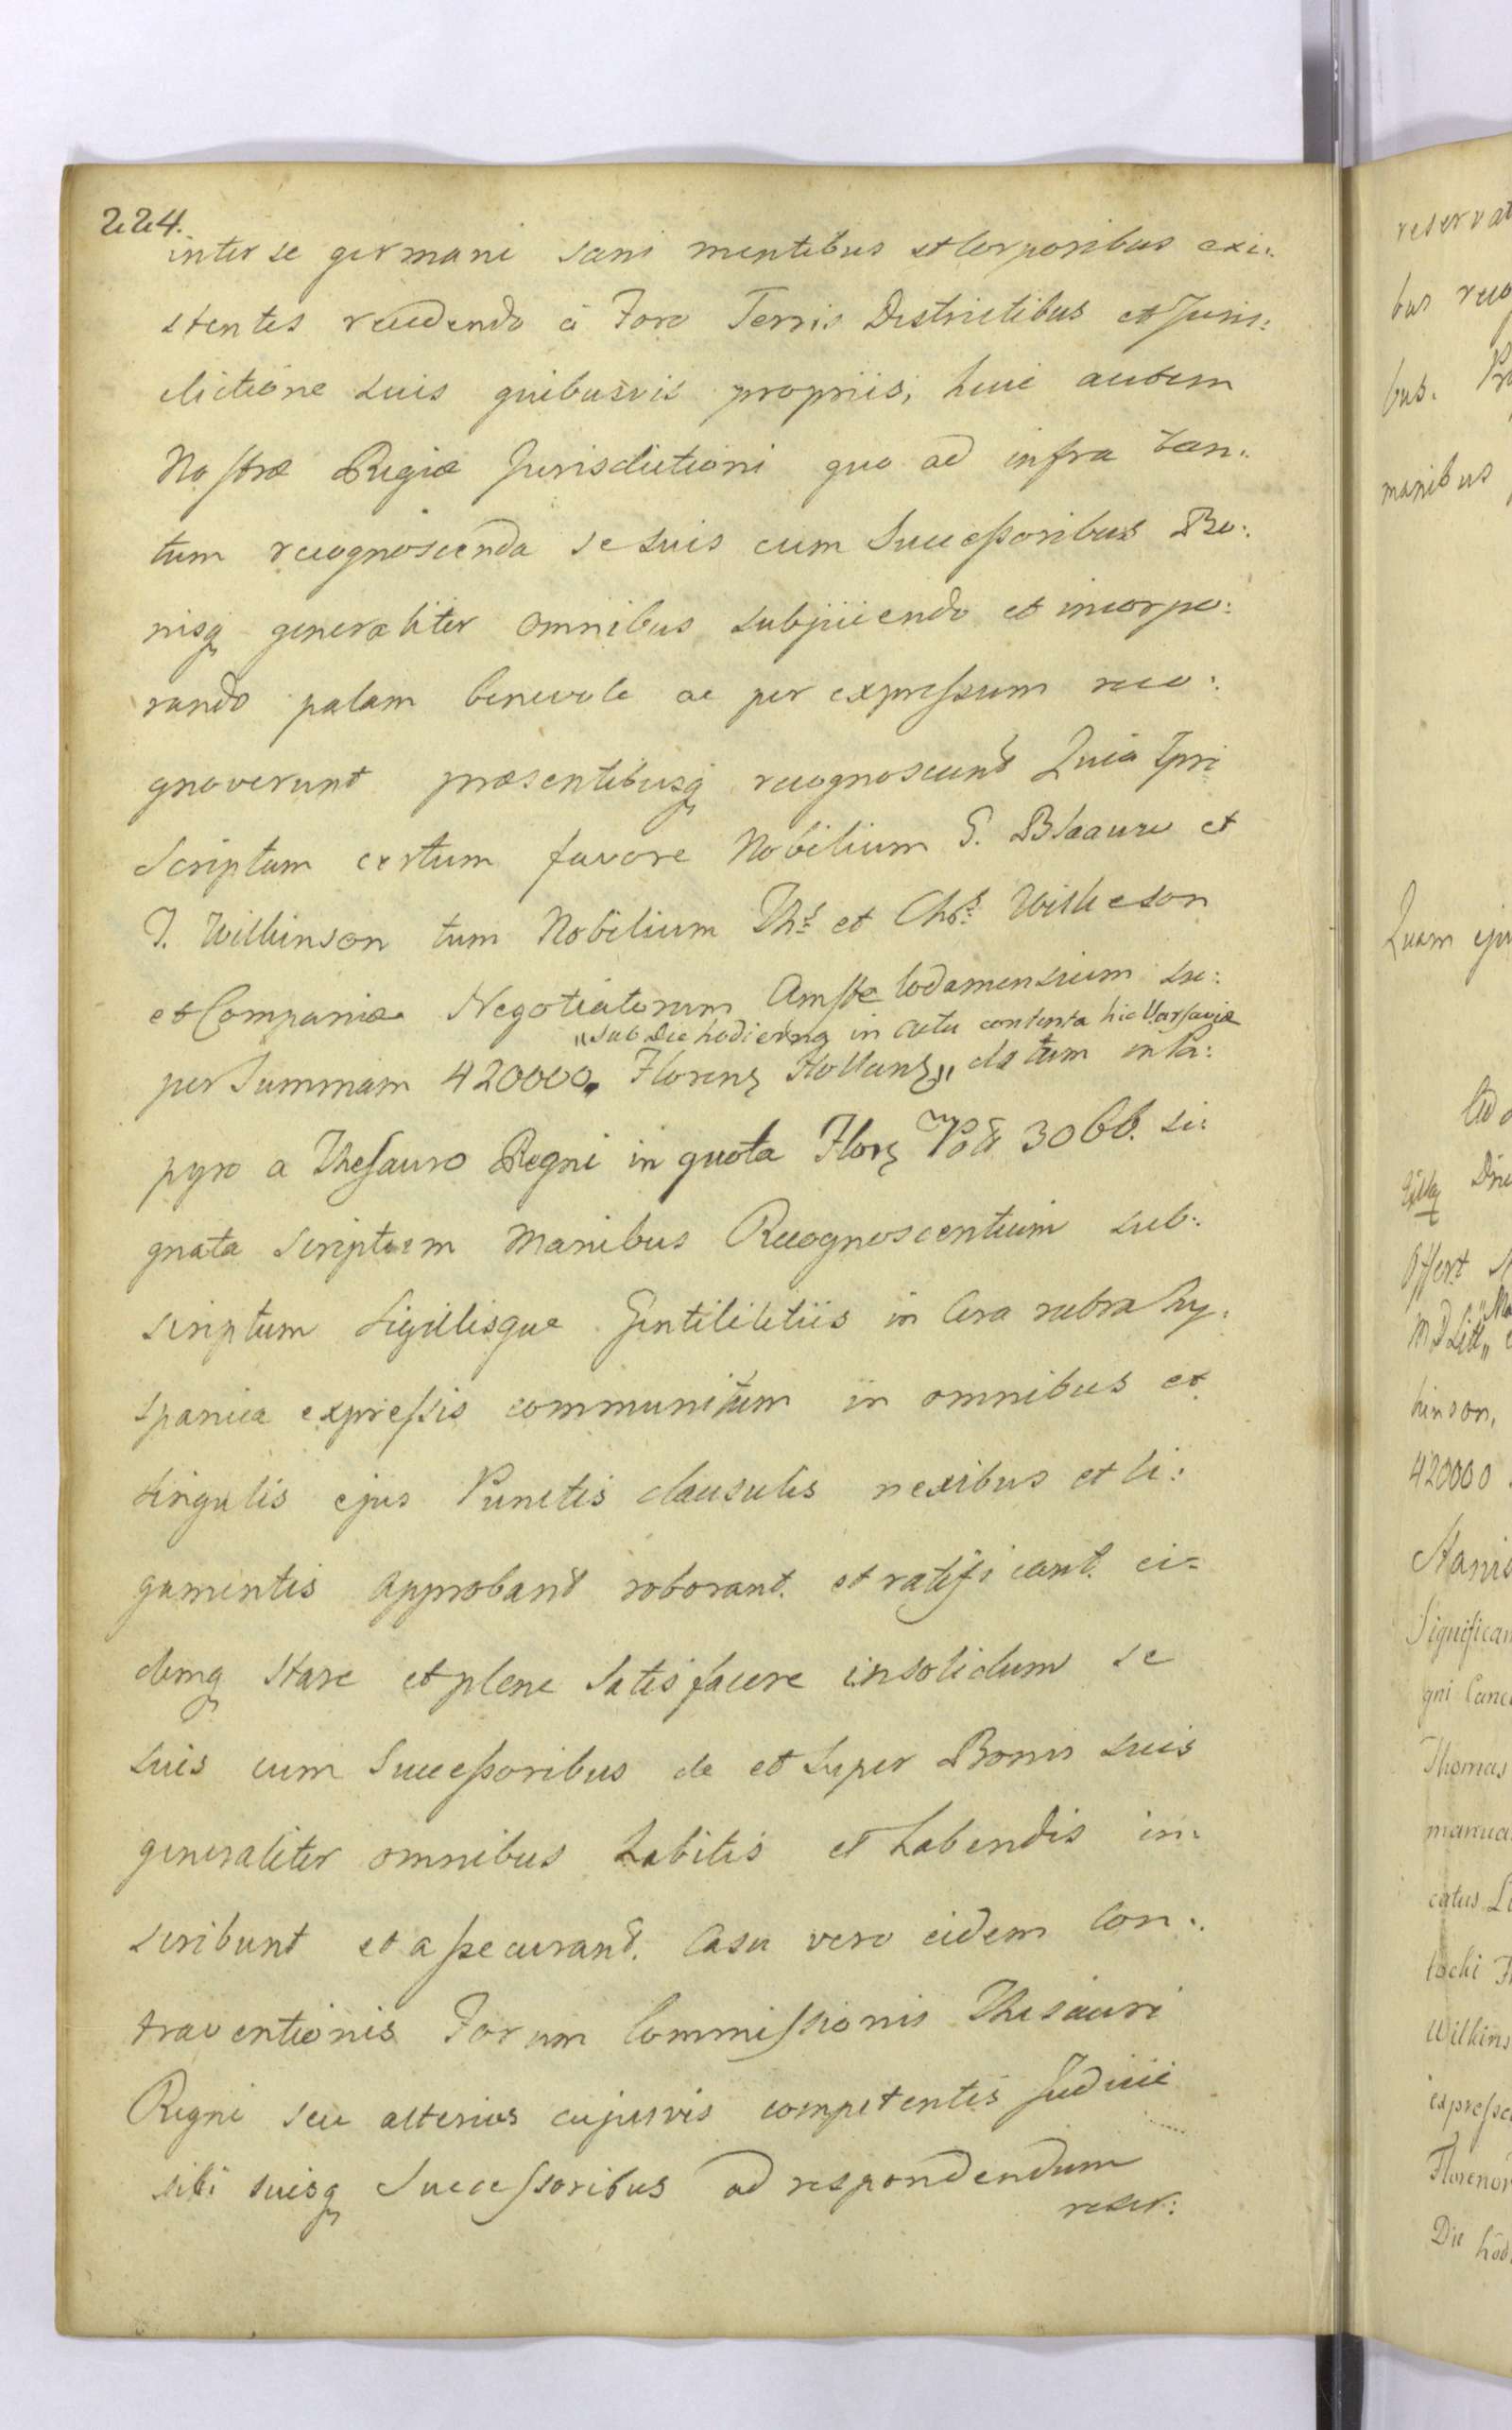 224.
inter se germani sani mentibus et Corporibus exi:
stentes recedendo à Foro Terris Districtibus et Juris:
dictione suis quibusvis propriis, huic autem
Nostræ Regiæ Jurisdictioni quo ad infra tan:
tum recognoscenda se suis cum Successoribus Bo:
nisq generaliter omnibus subjiciendo et incorpo:
rando palam benevole ac per expressum reco:
gnoverunt præsentibusq recognoscunt Quia Ipsi
Scriptum certum favore Nobilium G. Blaauw et
J. Wilkinson tum Nobilium Ths et Chrs Wilkeson
et Companiæ Negotiatorum Amstelodamensium su:
„sub Die hodierna in actu contenta hic Varsaviæ
per Summam 420000. Floren Holland„ datum in Pa:
pyro a Thesauro Regni in quota Flor Pol 3066. si:
gnata scriptum Manibus Recognoscentium sub:
scriptum Sigillisque Gentilitiis in Cera rubra hy:
spanica expressis communitum in omnibus et
singulis ejus Punctis clausulis nexibus et li:
gamentis approbant roborant et ratificant ei=
demq stare et plene Satisfacere insolidum se
suis cum Successoribus de et super Bonis suis
generaliter omnibus habitis et habendis in:
scribunt et assecurant. Casu vero eidem Con:
traventionis Forum Commissionis Thesauri
Regni seu alterius cujusvis competentis Judicii
sibi suisq Successoribus ad respondendum
reser:
reservat
bus reco
bus.
manibus
Quam
Offert
hinson,
420000
Stanis
Significam
gni Canc
Thomas
manua
catus Li
Wilkins
expresse
Florenor
Die hod